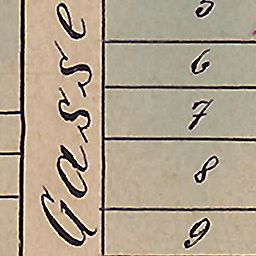 Gasse
5
6
7
8
9